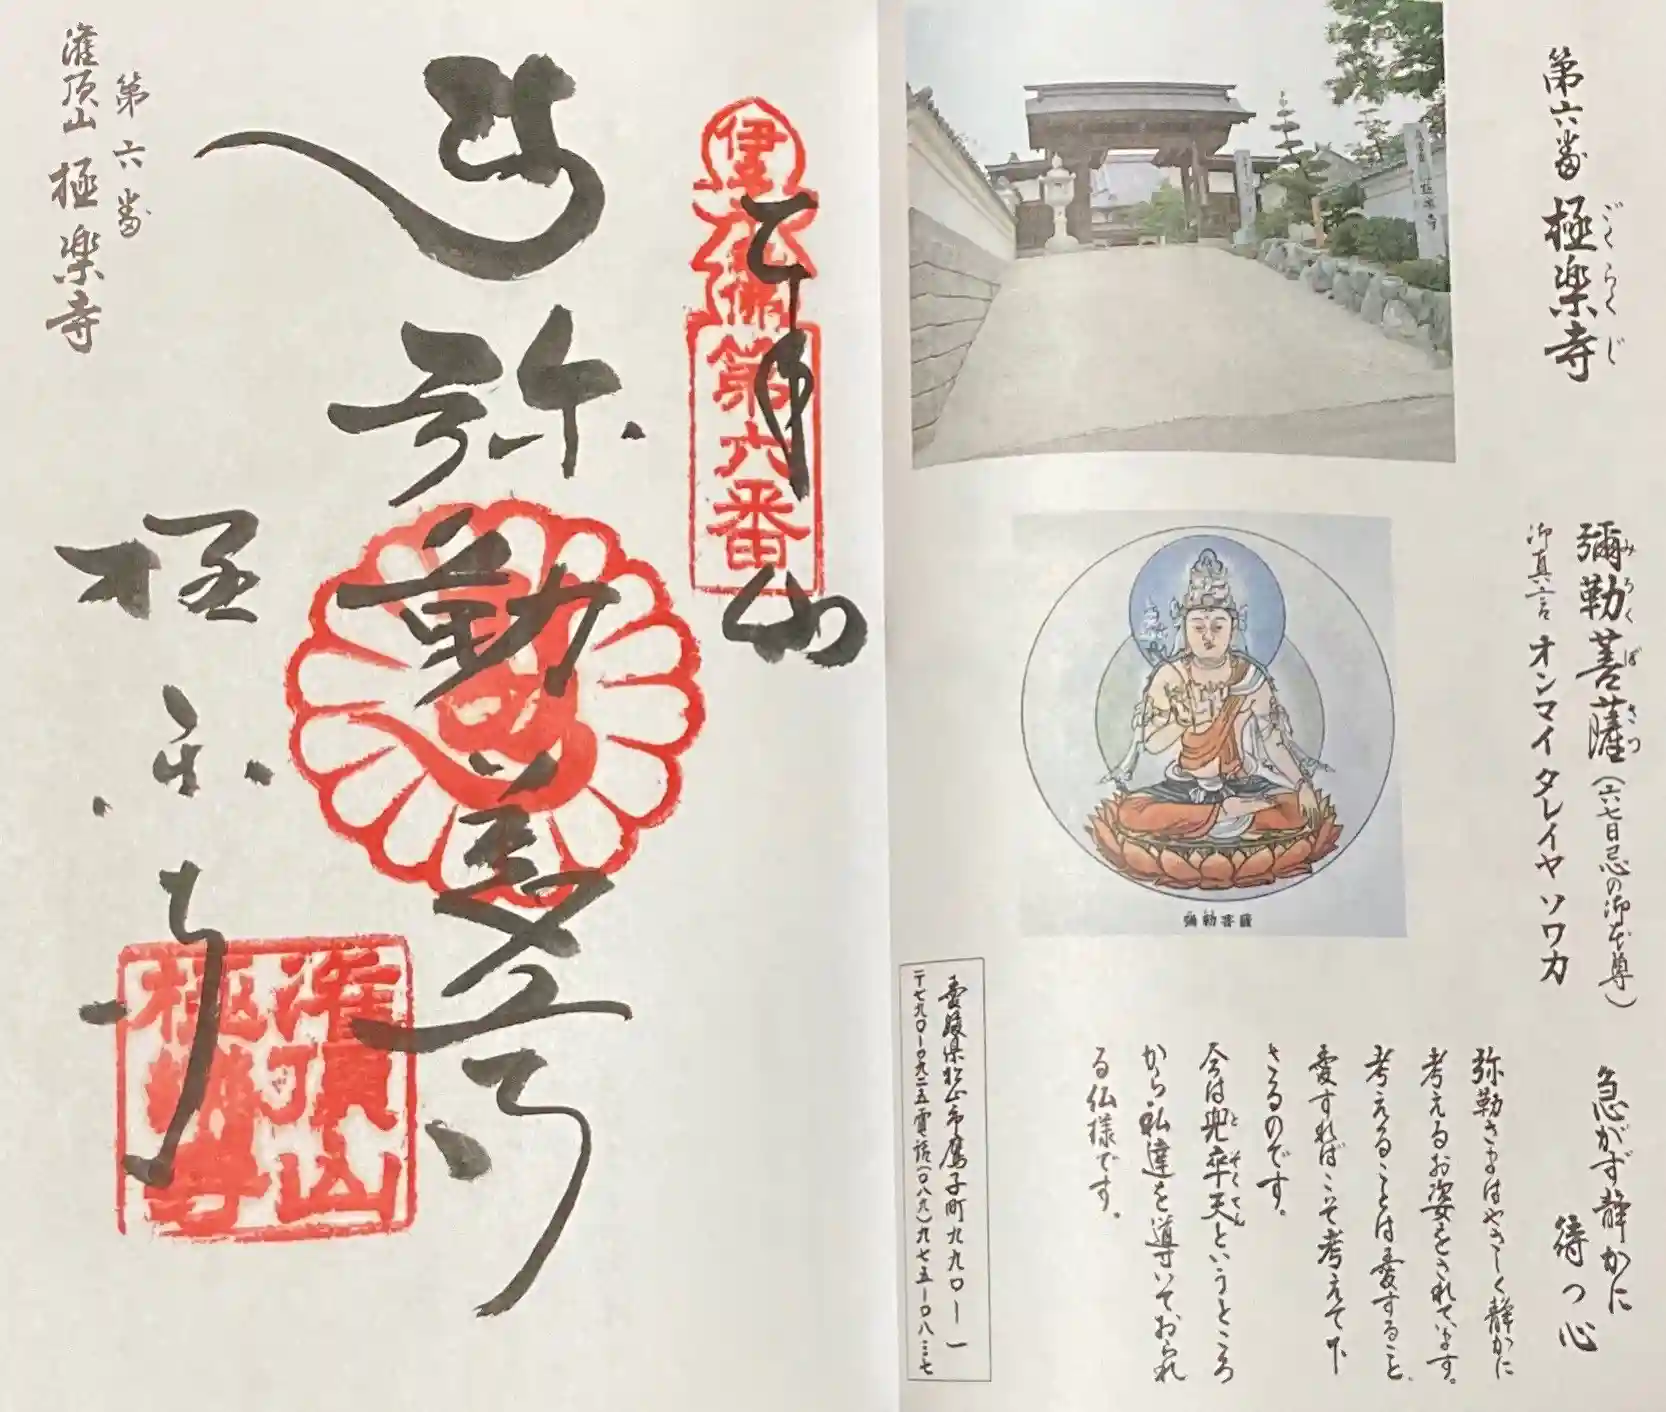 第六番 極楽寺
ごくらくじ
彌勒菩薩(六七日忌の御本尊)
みろくぼさつ
御真言 オンマイタレイヤソワカ
急がず静かに
待つ心
弥勒さまはやさしく静かに
考えるお姿をされています。
考えることは愛すること、
愛すればこそ考えて下
さるのです。
今は兜率天というところ
とそつてん
から私達を導いておられ
る仏様です。
彌勒菩薩
愛媛県松山市鷹子町九九〇ー一
〒七九〇ー〇九二五電話(〇八九)九七五ー〇八三七
伊予
第六番
山
弥勒菩薩
極楽寺
灌頂山
極樂寺
第六番
灌頂山 極楽寺